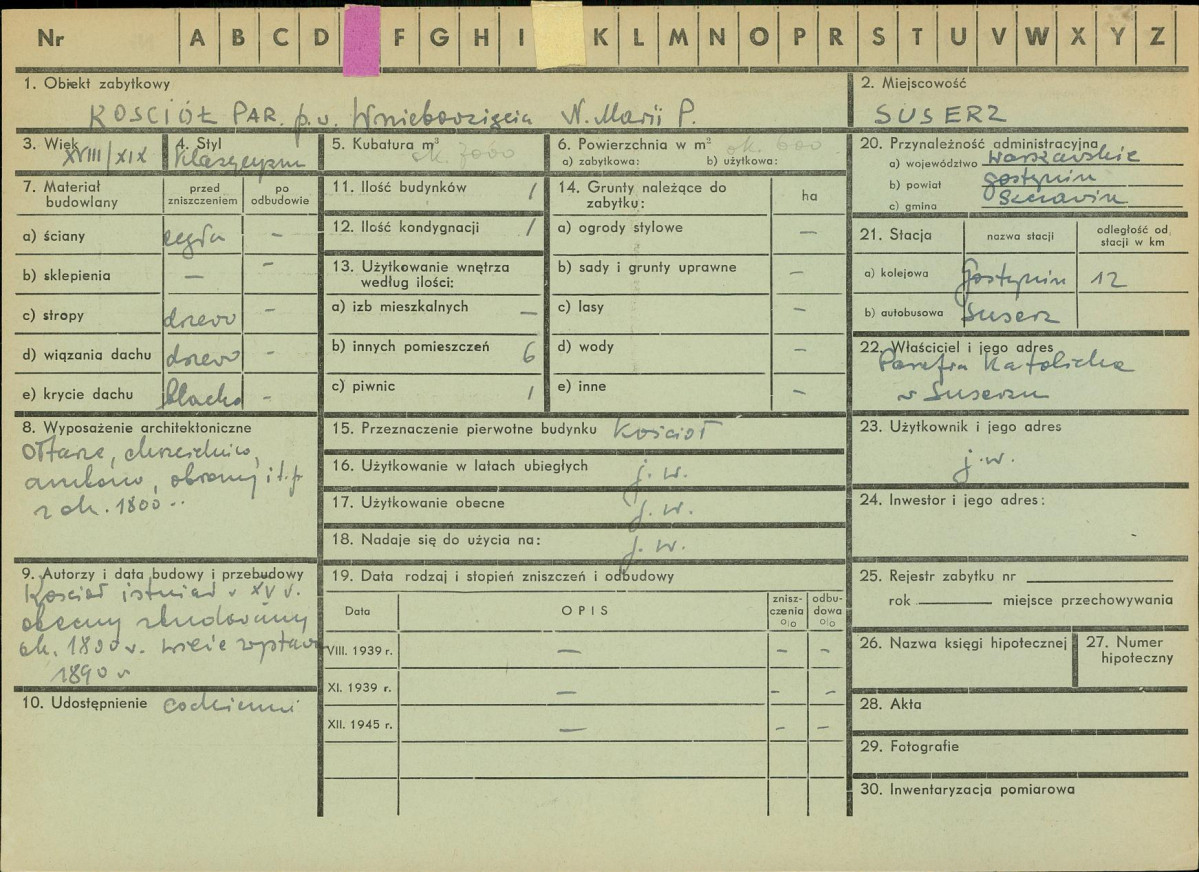 Nr A B C D F G H I K L M N O P R S T U V W X Y Z
1. Obiekt zabytkowy
KOSCIÓŁ PAR. p.w. Wniebowzięcia N. Marii P.
2. Miejscowość
SUSERZ
3. Wiek
XVIII/XIX
4. Styl
klasycyzm
5. Kubatura m³
ok. 7000
6. Powierzchnia w m²
ok. 600
a) zabytkowa: b) użytkowa:
7. Materiał budowlany
przed zniszczeniem
po odbudowie
a) ściany cegła –
b) sklepienia – –
c) stropy drzewo –
d) wiązania dachu drzewo –
e) krycie dachu blacha –
8. Wyposażenie architektoniczne
Ołtarze, chrzcielnica,
ambona, obrazy i t.p.
z ok. 1800..
9. Autorzy i data budowy i przebudowy
Kościół istniał w XV w.
obecny zbudowany
ok. 1800 r. wieże
1890 r
10. Udostępnienie codzienni
11. Ilość budynków 1
12. Ilość kondygnacji 1
13. Użytkowanie wnętrza według ilości:
a) izb mieszkalnych –
b) innych pomieszczeń 6
c) piwnic 1
14. Grunty należące do zabytku:
ha
a) ogrody stylowe –
b) sady i grunty uprawne –
c) lasy –
d) wody –
e) inne –
15. Przeznaczenie pierwotne budynku Kościół
16. Użytkowanie w latach ubiegłych j. w.
17. Użytkowanie obecne j. w.
18. Nadaje się do użycia na: j. w.
19. Data rodzaj i stopień zniszczeń i odbudowy
Data OPIS znisz-czenia % odbu-dowa %
VIII. 1939 r. – – –
XI. 1939 r. – – –
XII. 1945 r. – – –
20. Przynależność administracyjna
a) województwo warszawskie
b) powiat gostynin
c) gmina Szczawin
21. Stacja
nazwa stacji
odległość od stacji w km
a) kolejowa Gostynin 12
b) autobusowa Suserz
22. Właściciel i jego adres
Parafia Katolicka
w Suserzu
23. Użytkownik i jego adres
j.w.
24. Inwestor i jego adres:
25. Rejestr zabytku nr
rok miejsce przechowywania
26. Nazwa księgi hipotecznej
27. Numer hipoteczny
28. Akta
29. Fotografie
30. Inwentaryzacja pomiarowa